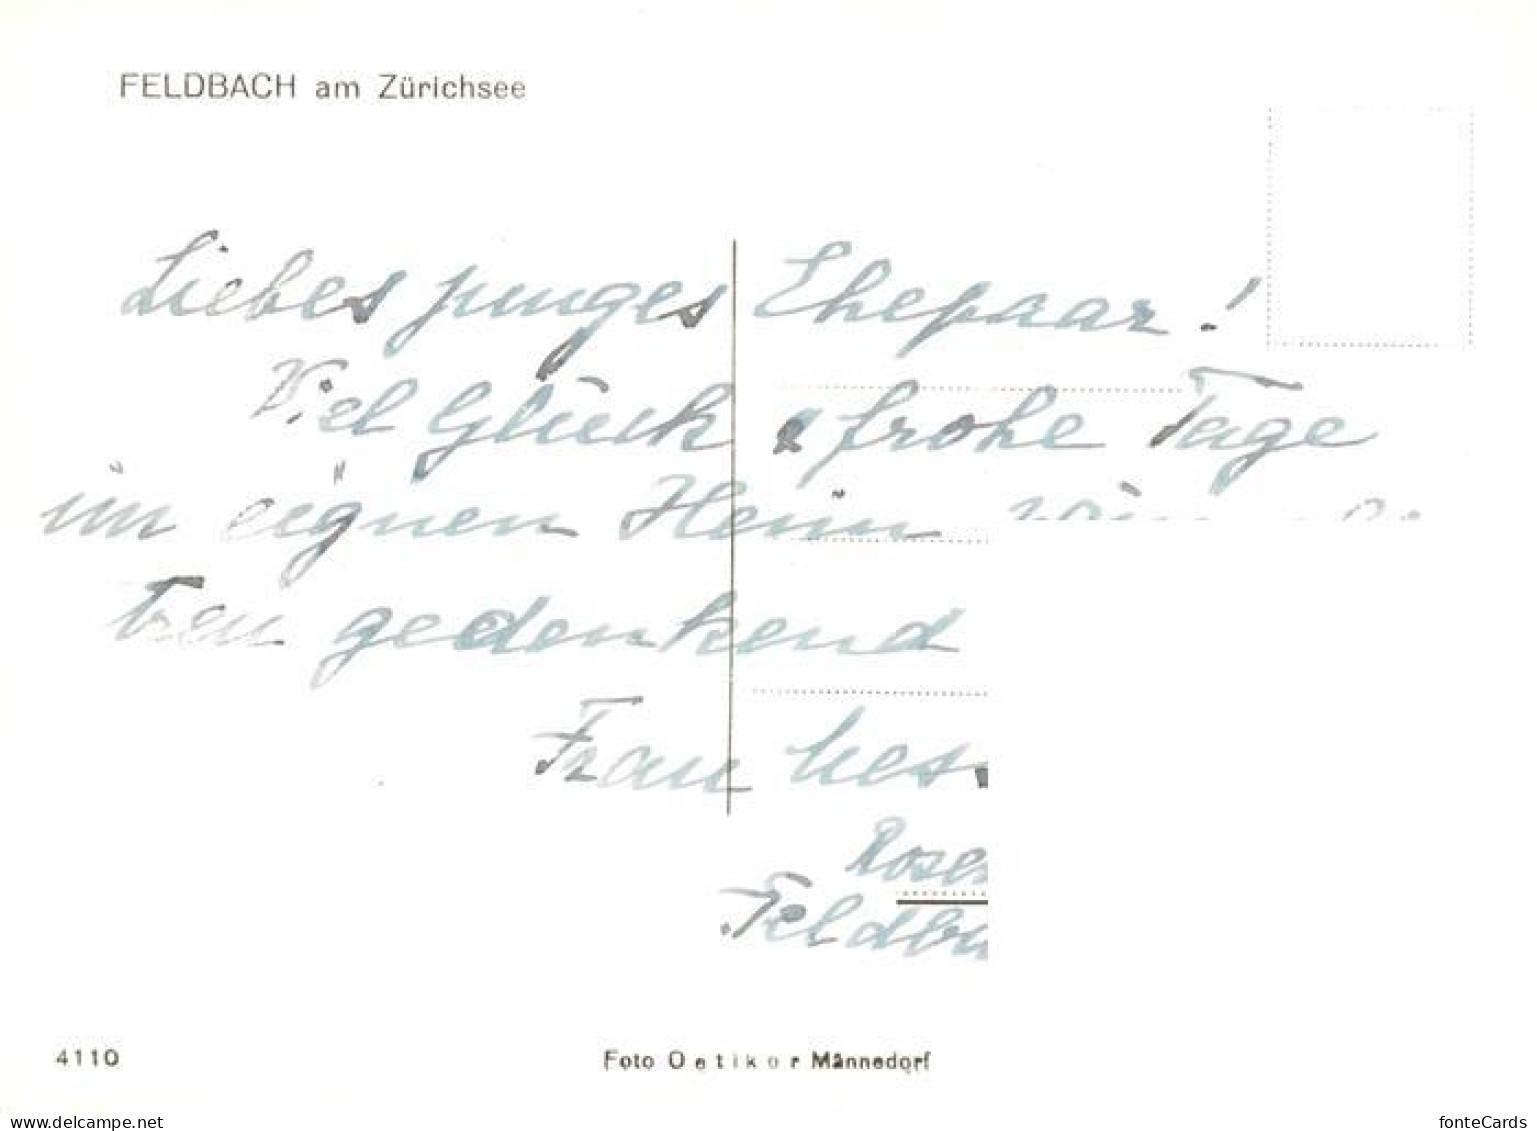 FELDBACH am Zürichsee
Liebes junges Ehepaar!
Viel Glück & frohe Tage
im eignen Heim
treu gedenkend
Frau
Rosen
Feldba
4110
Foto Oetiker Männedorf
www.delcampe.net
fonteCards